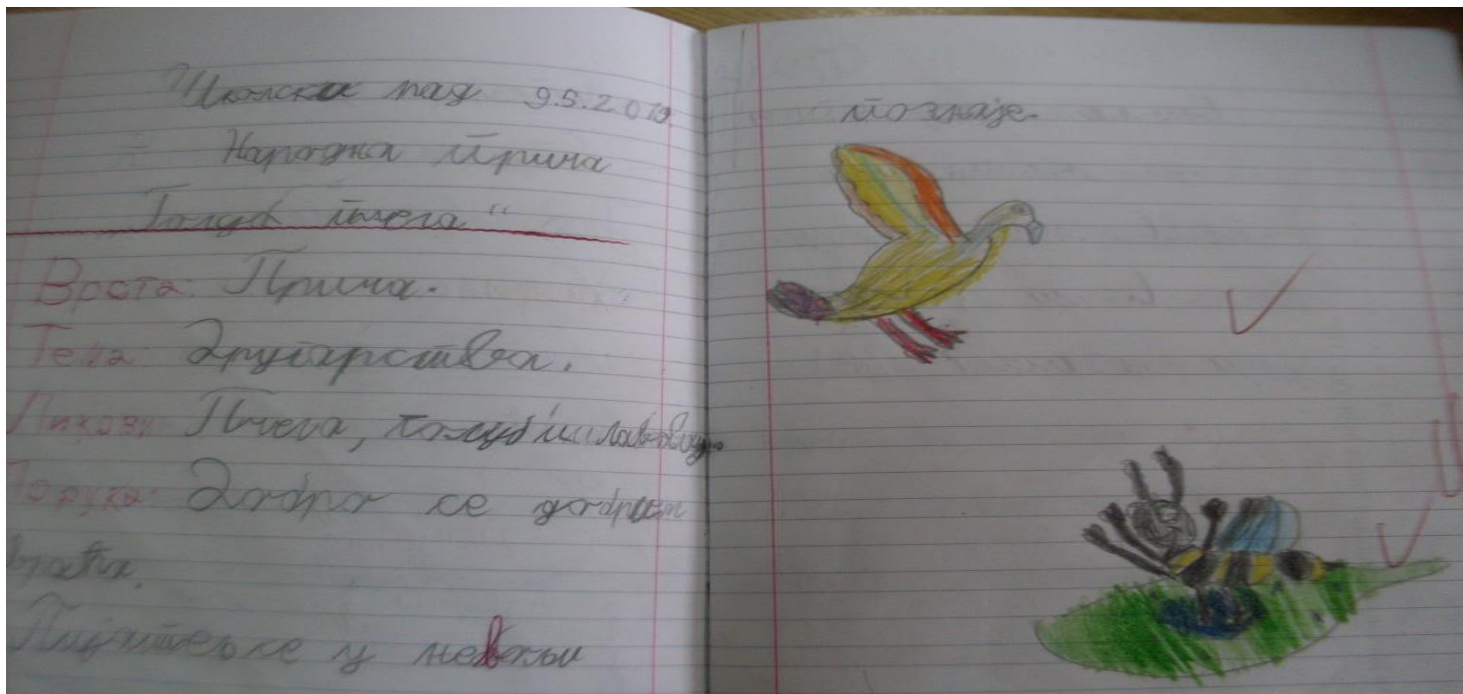 Школски рад 9.5.2019.
Народна прича
„Голуб пчела“
Врста: Прича.
Тема: Другарства.
Ликови: Пчела, голуб и ловац.
Порука: Добро се добрим
враћа.
Пријатељ се у невољи
познаје.